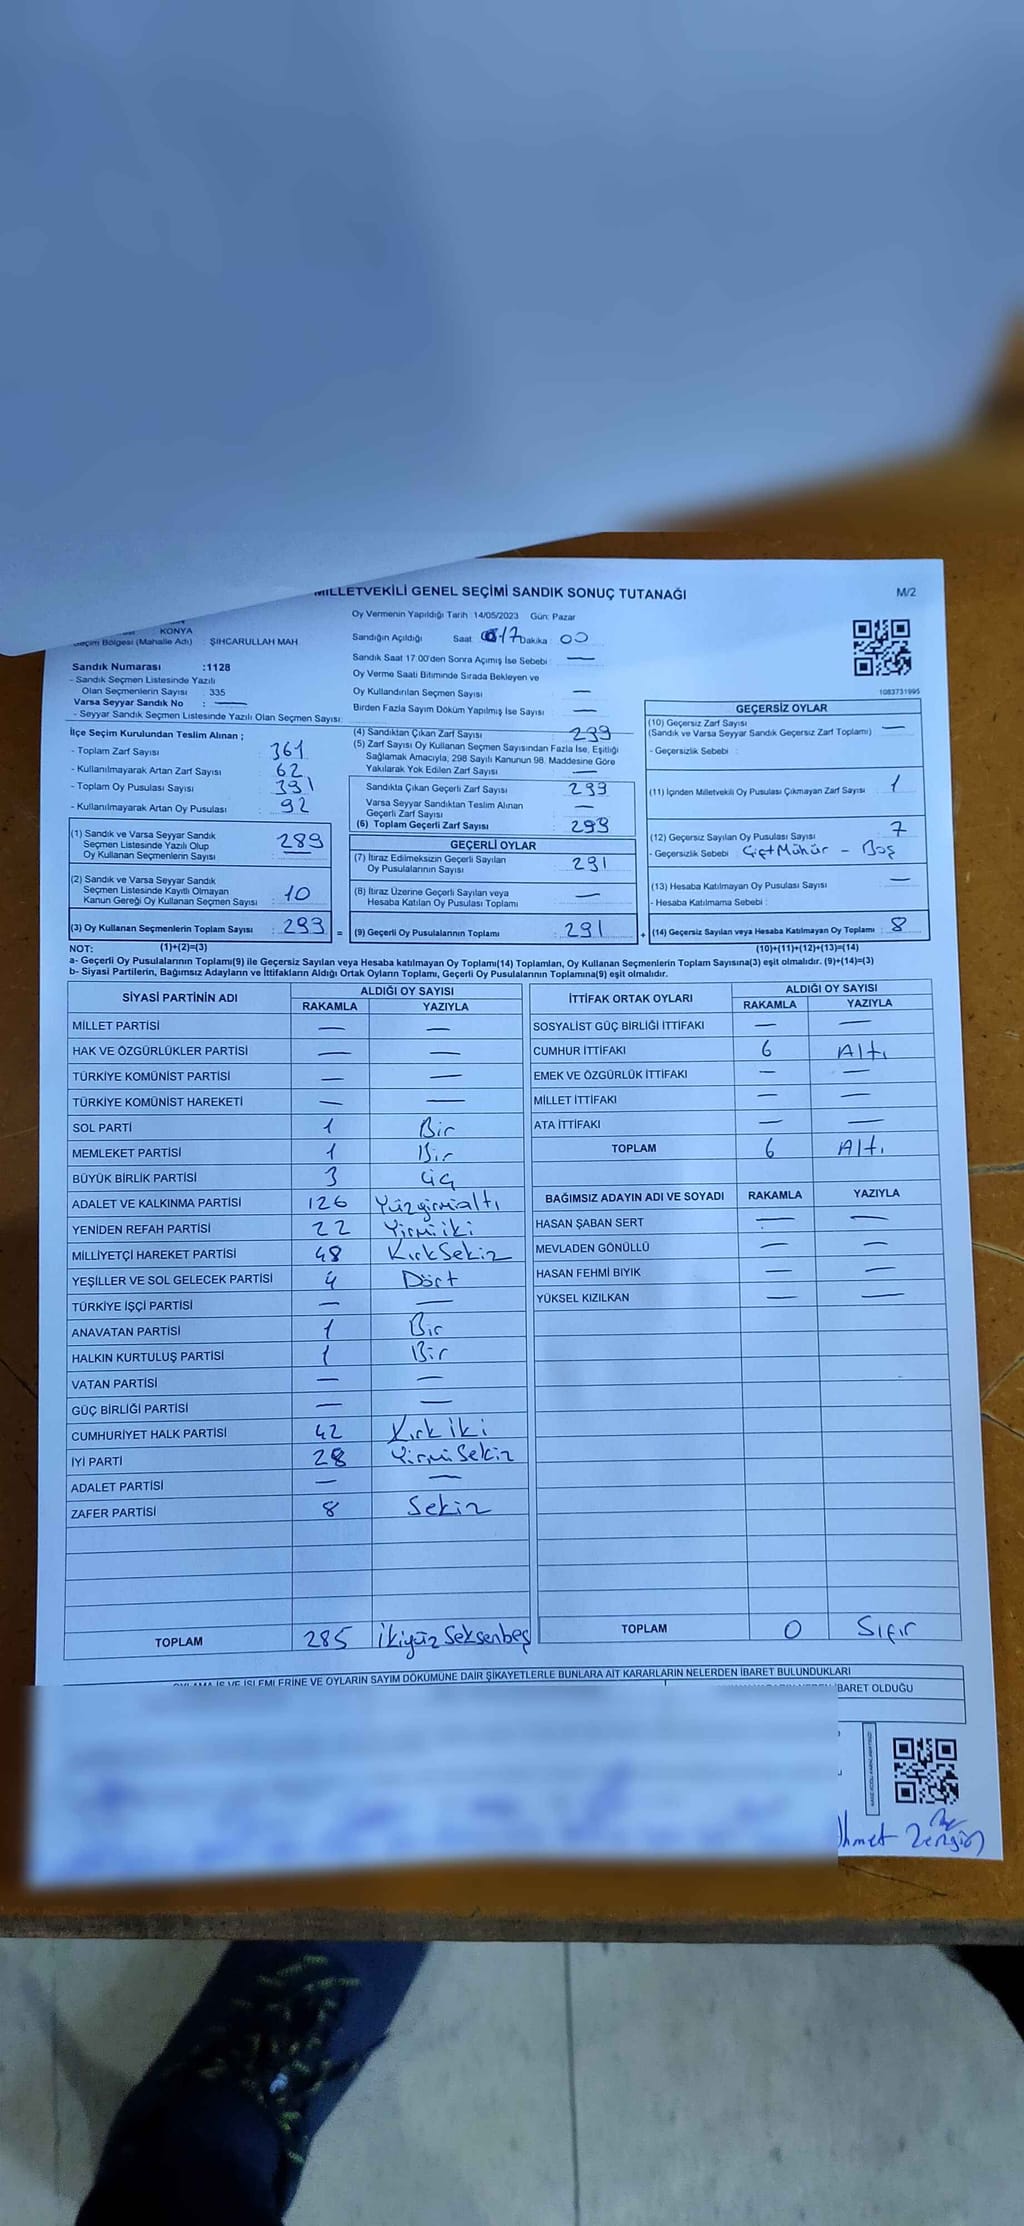 MİLLETVEKİLİ GENEL SEÇİMİ SANDIK SONUÇ TUTANAĞI
M/2
Oy Vermenin Yapıldığı Tarih : 14/05/2023 Gün: Pazar
KONYA
Seçim Bölgesi (Mahalle Adı) : ŞIHCARULLAH MAH
Sandığın Açıldığı Saat 17 Dakika : 00
Sandık Saat 17:00'den Sonra Açımış İse Sebebi : —
Oy Verme Saati Bitiminde Sırada Bekleyen ve
Oy Kullandırılan Seçmen Sayısı : —
Birden Fazla Sayım Döküm Yapılmış İse Sayısı : —
1083731995
Sandık Numarası :1128
- Sandık Seçmen Listesinde Yazılı
Olan Seçmenlerin Sayısı : 335
Varsa Seyyar Sandık No : —
- Seyyar Sandık Seçmen Listesinde Yazılı Olan Seçmen Sayısı:
İlçe Seçim Kurulundan Teslim Alınan ;
- Toplam Zarf Sayısı 361
- Kullanılmayarak Artan Zarf Sayısı : 62
- Toplam Oy Pusulası Sayısı : 391
- Kullanılmayarak Artan Oy Pusulası : 92
(1) Sandık ve Varsa Seyyar Sandık
Seçmen Listesinde Yazılı Olup
Oy Kullanan Seçmenlerin Sayısı : 289
(2) Sandık ve Varsa Seyyar Sandık
Seçmen Listesinde Kayıtlı Olmayan
Kanun Gereği Oy Kullanan Seçmen Sayısı : 10
(3) Oy Kullanan Seçmenlerin Toplam Sayısı : 299 =
(4) Sandıktan Çıkan Zarf Sayısı : 299
(5) Zarf Sayısı Oy Kullanan Seçmen Sayısından Fazla İse, Eşitliği
Sağlamak Amacıyla, 298 Sayılı Kanunun 98. Maddesine Göre
Yakılarak Yok Edilen Zarf Sayısı : —
Sandıkta Çıkan Geçerli Zarf Sayısı : 299
Varsa Seyyar Sandıktan Teslim Alınan
Geçerli Zarf Sayısı : —
(6) Toplam Geçerli Zarf Sayısı : 299
GEÇERLİ OYLAR
(7) İtiraz Edilmeksizin Geçerli Sayılan
Oy Pusulalarının Sayısı : 291
(8) İtiraz Üzerine Geçerli Sayılan veya
Hesaba Katılan Oy Pusulası Toplamı : —
(9) Geçerli Oy Pusulalarının Toplamı : 291 +
GEÇERSİZ OYLAR
(10) Geçersiz Zarf Sayısı
(Sandık ve Varsa Seyyar Sandık Geçersiz Zarf Toplamı) : —
- Geçersizlik Sebebi :
(11) İçinden Milletvekili Oy Pusulası Çıkmayan Zarf Sayısı : 1
(12) Geçersiz Sayılan Oy Pusulası Sayısı : 7
- Geçersizlik Sebebi : Çift Mühür - Boş
(13) Hesaba Katılmayan Oy Pusulası Sayısı : —
- Hesaba Katılmama Sebebi :
(14) Geçersiz Sayılan veya Hesaba Katılmayan Oy Toplamı : 8
NOT: (1)+(2)=(3) (10)+(11)+(12)+(13)=(14)
a- Geçerli Oy Pusulalarının Toplamı(9) ile Geçersiz Sayılan veya Hesaba katılmayan Oy Toplamı(14) Toplamları, Oy Kullanan Seçmenlerin Toplam Sayısına(3) eşit olmalıdır. (9)+(14)=(3)
b- Siyasi Partilerin, Bağımsız Adayların ve İttifakların Aldığı Ortak Oyların Toplamı, Geçerli Oy Pusulalarının Toplamına(9) eşit olmalıdır.
SİYASİ PARTİNİN ADI ALDIĞI OY SAYISI
RAKAMLA YAZIYLA
MİLLET PARTİSİ — —
HAK VE ÖZGÜRLÜKLER PARTİSİ — —
TÜRKİYE KOMÜNİST PARTİSİ — —
TÜRKİYE KOMÜNİST HAREKETİ — —
SOL PARTİ 1 Bir
MEMLEKET PARTİSİ 1 Bir
BÜYÜK BİRLİK PARTİSİ 3 Üç
ADALET VE KALKINMA PARTİSİ 126 Yüzyirmialtı
YENİDEN REFAH PARTİSİ 22 Yirmiiki
MİLLİYETÇİ HAREKET PARTİSİ 48 KırkSekiz
YEŞİLLER VE SOL GELECEK PARTİSİ 4 Dört
TÜRKİYE İŞÇİ PARTİSİ — —
ANAVATAN PARTİSİ 1 Bir
HALKIN KURTULUŞ PARTİSİ 1 Bir
VATAN PARTİSİ — —
GÜÇ BİRLİĞİ PARTİSİ — —
CUMHURİYET HALK PARTİSİ 42 Kırk iki
İYİ PARTİ 28 Yirmi Sekiz
ADALET PARTİSİ — —
ZAFER PARTİSİ 8 Sekiz
TOPLAM 285 İkiyüz Seksenbeş
İTTİFAK ORTAK OYLARI ALDIĞI OY SAYISI
RAKAMLA YAZIYLA
SOSYALİST GÜÇ BİRLİĞİ İTTİFAKI — —
CUMHUR İTTİFAKI 6 Altı
EMEK VE ÖZGÜRLÜK İTTİFAKI — —
MİLLET İTTİFAKI — —
ATA İTTİFAKI — —
TOPLAM 6 Altı
BAĞIMSIZ ADAYIN ADI VE SOYADI RAKAMLA YAZIYLA
HASAN ŞABAN SERT — —
MEVLADEN GÖNÜLLÜ — —
HASAN FEHMİ BIYIK — —
YÜKSEL KIZILKAN — —
TOPLAM 0 Sıfır
VE İŞLEMLERİNE VE OYLARIN SAYIM DÖKÜMÜNE DAİR ŞİKAYETLERLE BUNLARA AİT KARARLARIN NELERDEN İBARET BULUNDUKLARI
İBARET OLDUĞU
Ahmet Zengin